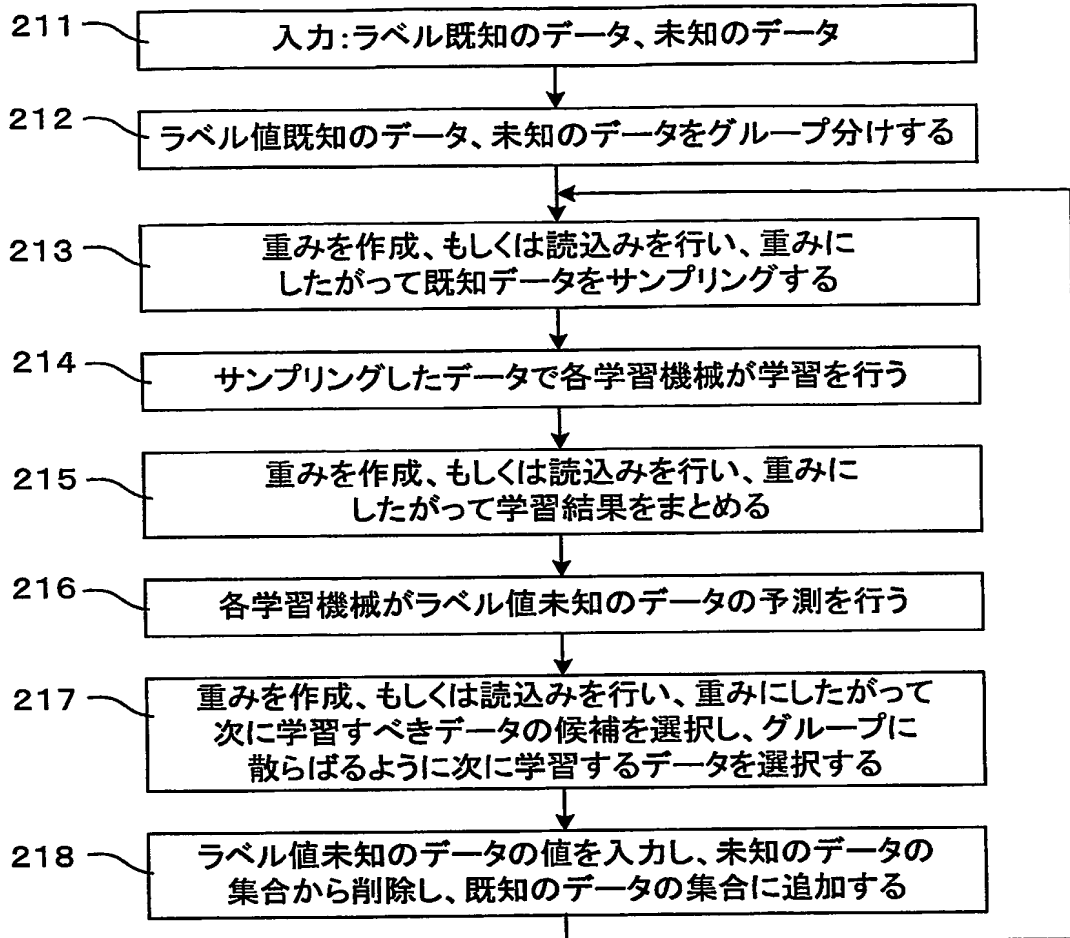 211
入力:ラベル既知のデータ、未知のデータ
212
ラベル値既知のデータ、未知のデータをグループ分けする
213
重みを作成、もしくは読込みを行い、重みに
したがって既知データをサンプリングする
214
サンプリングしたデータで各学習機械が学習を行う
215
重みを作成、もしくは読込みを行い、重みに
したがって学習結果をまとめる
216
各学習機械がラベル値未知のデータの予測を行う
217
重みを作成、もしくは読込みを行い、重みにしたがって
次に学習すべきデータの候補を選択し、グループに
散らばるように次に学習するデータを選択する
218
ラベル値未知のデータの値を入力し、未知のデータの
集合から削除し、既知のデータの集合に追加する